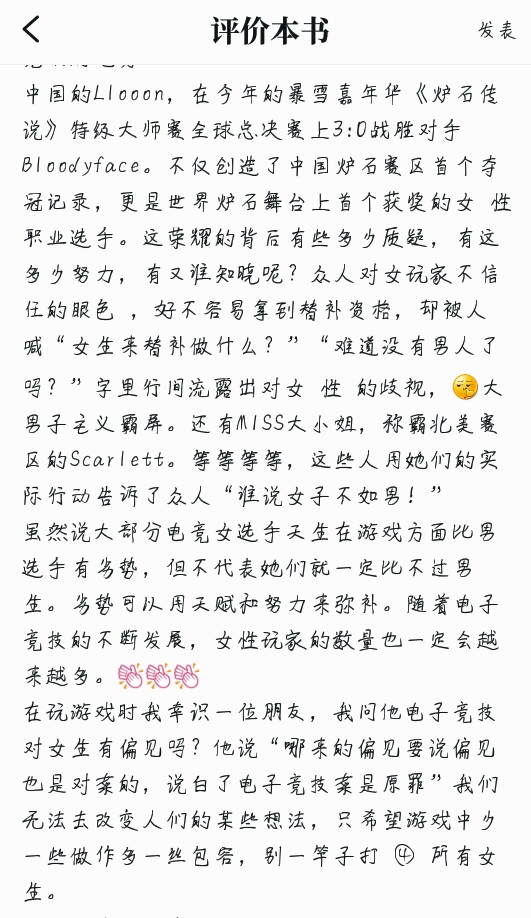 评价本书
发表
中国的Llooon，在今年的暴雪嘉年华《炉石传
说》特级大师赛全球总决赛上3:0战胜对手
Bloodyface。不仅创造了中国炉石赛区首个夺
冠记录，更是世界炉石舞台上首个获奖的女 性
职业选手。这荣耀的背后有些多少质疑，有这
多少努力，有又谁知晓呢？众人对女玩家不信
任的眼色 ，好不容易拿到替补资格，却被人
喊“女生来替补做什么？”“难道没有男人了
吗？”字里行间流露出对女 性 的歧视，大
男子主义霸屏。还有MISS大小姐，称霸北美赛
区的Scarlett。等等等等，这些人用她们的实
际行动告诉了众人“谁说女子不如男！”
虽然说大部分电竞女选手天生在游戏方面比男
选手有劣势，但不代表她们就一定比不过男
生。劣势可以用天赋和努力来弥补。随着电子
竞技的不断发展，女性玩家的数量也一定会越
来越多。
在玩游戏时我幸识一位朋友，我问他电子竞技
对女生有偏见吗？他说“哪来的偏见要说偏见
也是对菜的，说白了电子竞技菜是原罪”我们
无法去改变人们的某些想法，只希望游戏中少
一些做作多一丝包容，别一竿子打 ④ 所有女
生。